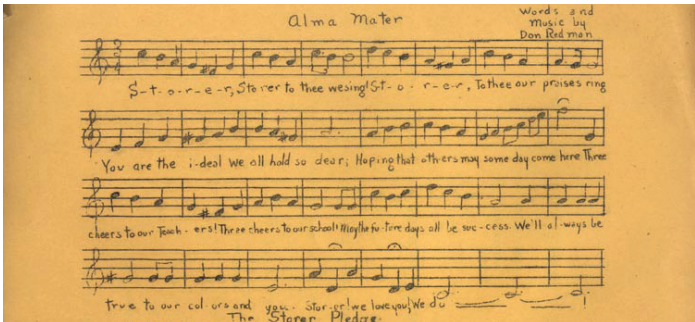 Alma Mater
Words and
Music by
Don Redman
S-t-o-r-e-r, Storer to thee we sing! S-t-o-r-e-r, To thee our praises ring
You are the i-deal We all hold so dear; Hoping that others may some day come here Three
cheers to our Teach-ers! Three cheers to our school! May the fu-ture days all be suc-cess. We'll al-ways be
true to our col-ors and you. Stor-er! we love you! We do!
The Storer Pledge